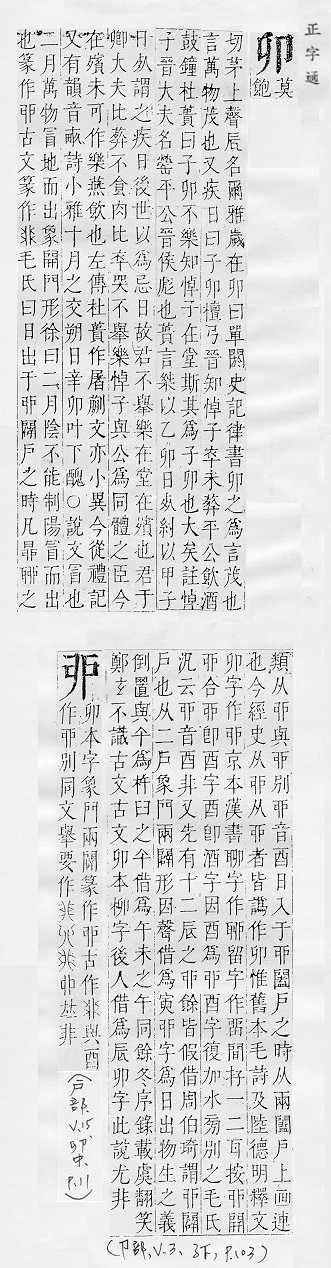 正字通
卯
莫鮑
切茅上聲辰名爾雅歲在卯曰單閼史記律書卯之爲言茂也
言萬物茂也又疾日曰子卯檀弓晉知悼子卒未葬平公飲酒
鼓鐘杜蕢曰子卯不樂知悼子在堂斯其爲子卯也大矣註悼
子晉大夫名罃平公晉侯彪也蕢言桀以乙卯日死紂以甲子
日死謂之疾日後世以爲忌日故君不舉樂在堂在殯也君于
卿大夫比葬不食肉比卒哭不舉樂悼子與公爲同體之臣今
在殯未可作樂燕飲也左傳杜蕢作屠蒯文亦小異今從禮記
又有韻音畞詩小雅十月之交朔日辛卯叶下醜○說文冒也
二月萬物冒地而出象開門形徐曰二月陰不能制陽冒而出
也篆作丣古文篆作𩇨毛氏曰日出于丣闢戶之時凡昴聊之
類从丣與丣別丣音酉日入于丣闔戶之時从兩闔戶上画連
也今經史从丣从丣者皆譌作卯惟舊本毛詩及陸德明釋文
卯字作丣京本漢書聊字作聊留字作畱間存一二耳按丣闢
丣合丣卽酉字酉卽酒字因酉爲丣酉字復加水旁別之毛氏
況云丣音酉非又先有十二辰之丣餘皆假借周伯琦謂丣闢
戶也从二戶象門兩闢形因聲借爲寅丣字爲日出物生之義
倒置與午爲杵臼之午借爲午未之午同餘冬序錄載虞翻笑
鄭玄不識古文古文卯本柳字後人借爲辰卯字此說尤非
(卩部, V.3、子下, P.103)
丣
卯本字象門兩闢篆作丣古作𩇨與酉
作丣別同文舉要作非
(戶部, V.15 卯中 P.11)